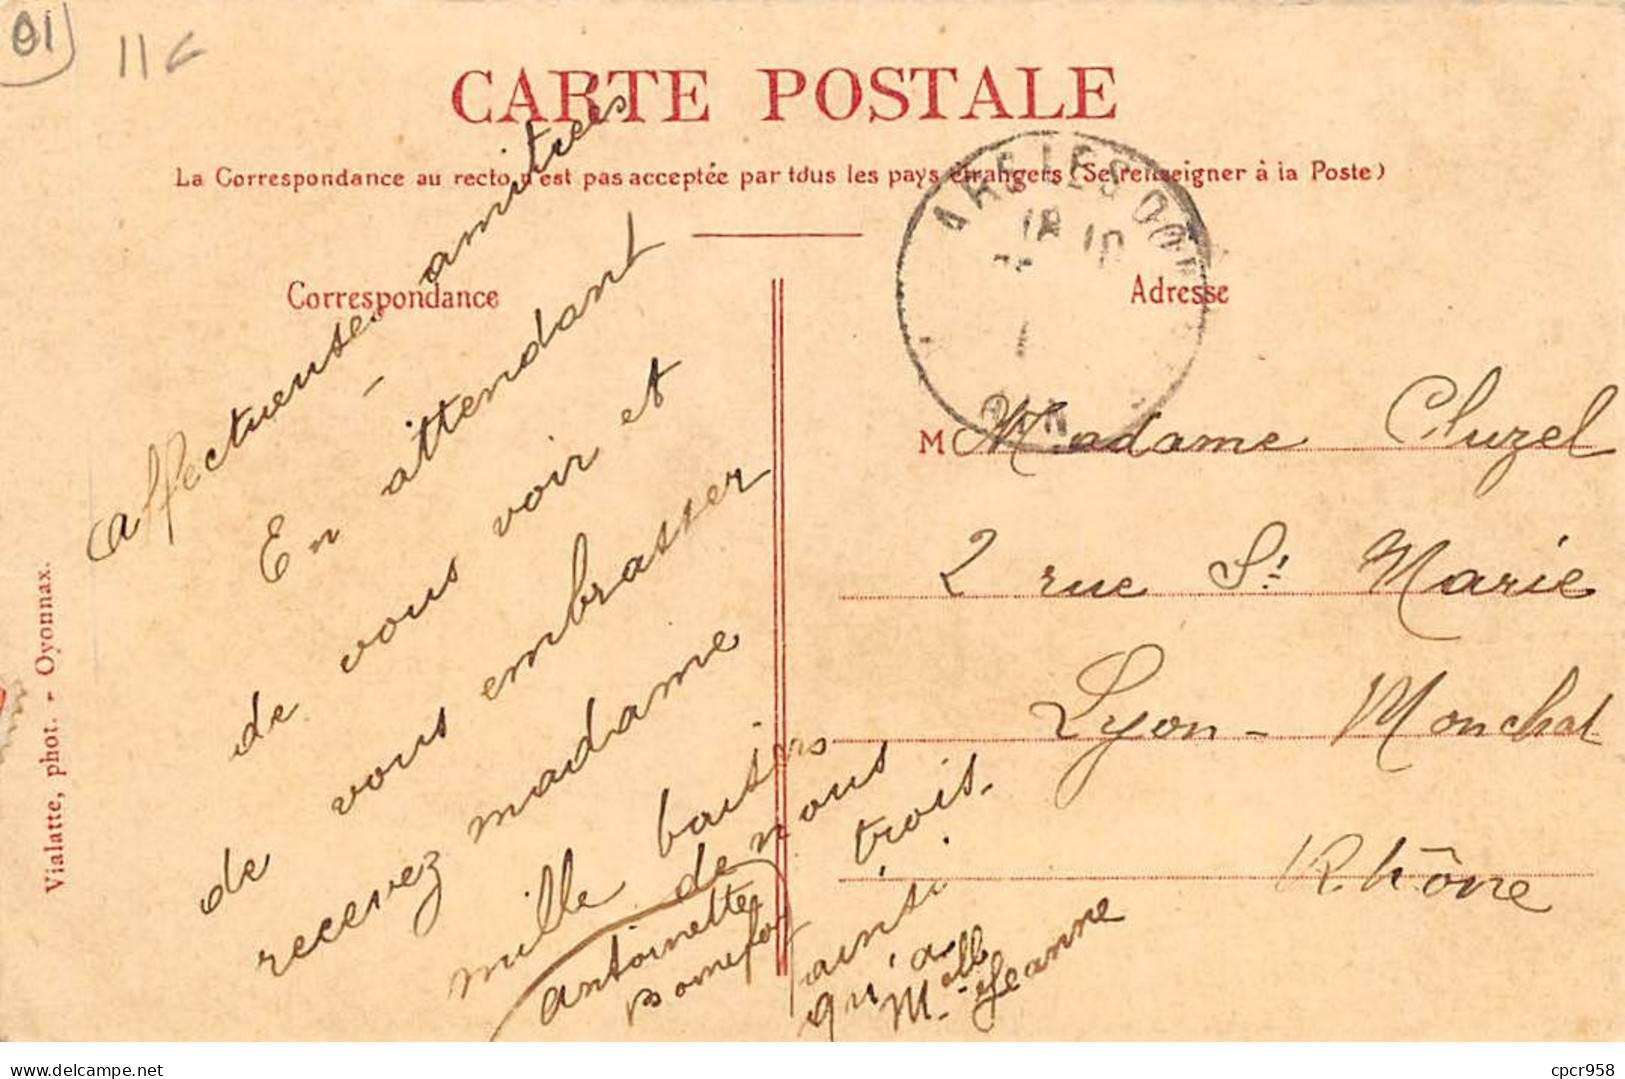 01
11
CARTE POSTALE
La Correspondance au recto n'est pas acceptée par tous les pays étrangers (Se renseigner à la Poste)
Correspondance
Adresse
Affectueuses amitiées
En attendant
de vous voir et
de vous embrasser
recevez madame
mille baisers
de nous
trois.
ainsi
qu'a
Melle Jeanne
Antoinette
Bonnefoy
18 10
AIN
M Madame Cluzel
2 rue St Marie
Lyon - Monchat
Rhône
Vialatte, phot. - Oyonnax.
delcampe.net
cpcr958